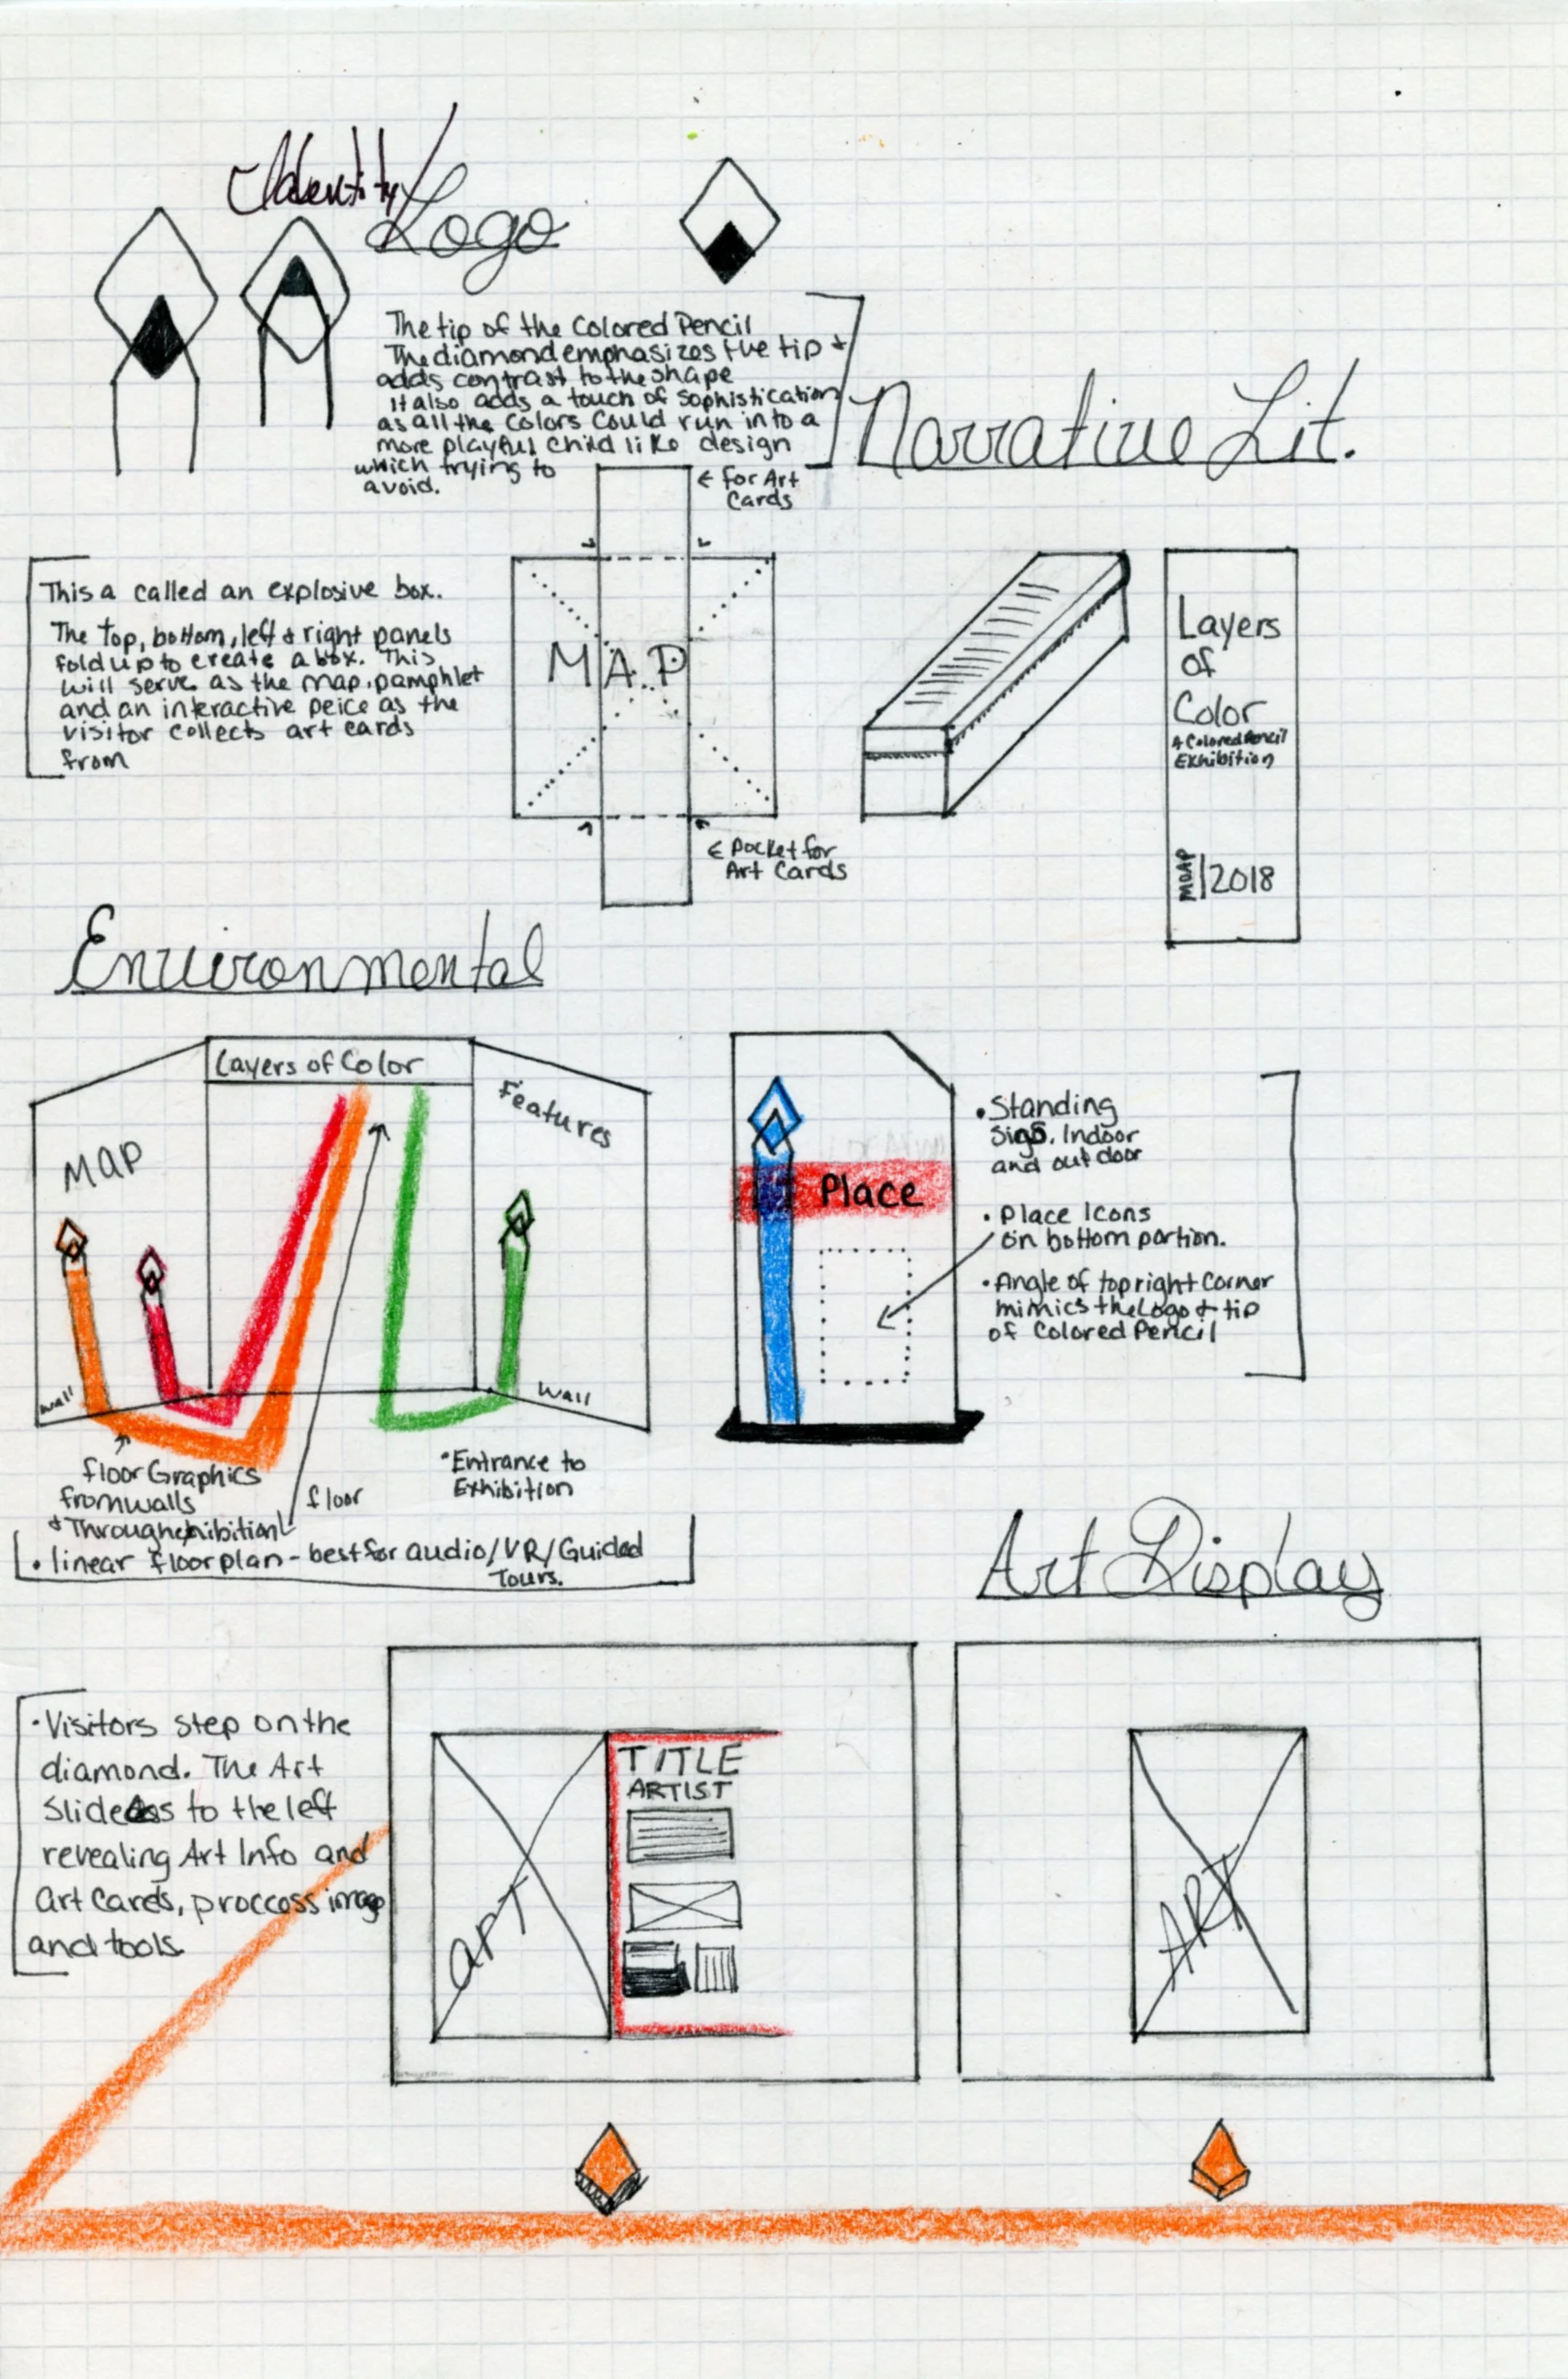 Identity/
Logo
The tip of the Colored Pencil
The diamond emphasizes the tip +
adds contrast to the shape
it also adds a touch of Sophistication
as all the Colors Could run into a
more playful Child like design
which trying to
avoid.
Narrative Lit.
← for Art
Cards
This a called an explosive box.
The top, bottom, left & right panels
fold up to create a box. This
will serve as the map, pamphlet
and an interactive peice as the
visitor collects art cards
from
MAP
← Pocket for
Art Cards
Layers
of
Color
A Colored Pencil
Exhibition
MOAP | 2018
Environmental
Layers of Color
MAP
Features
wall
wall
floor Graphics
from walls
& Through exhibition
floor
• Entrance to
Exhibition
• linear floorplan - best for audio/VR/Guided
Tours.
Place
• Standing
Signs. Indoor
and outdoor
• Place Icons
on bottom portion.
• Angle of top right Corner
mimics the Logo & tip
of Colored Pencil
Art Display
• Visitors step on the
diamond. The Art
Slides to the left
revealing Art Info and
Art Cards, proccess image
and tools.
ART
TITLE
ARTIST
ART